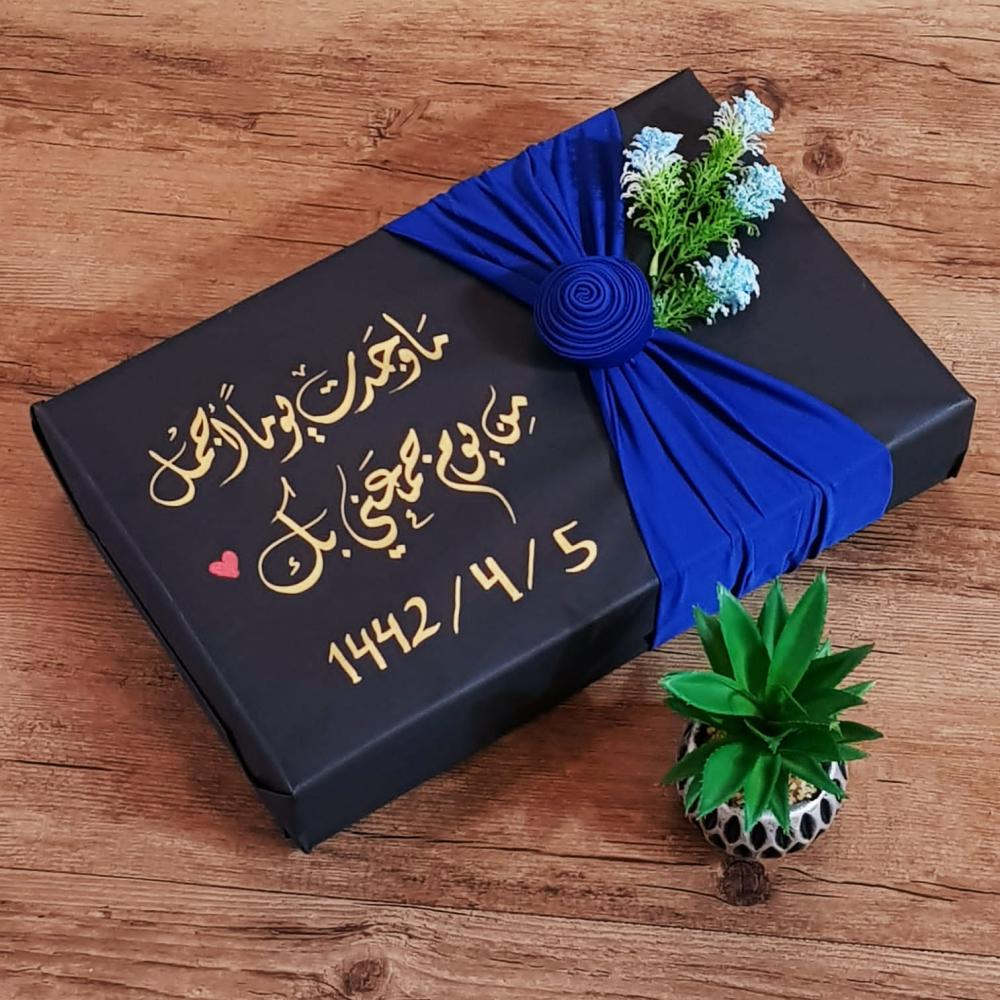 ما وجدت يوماً أجمل
من يوم جمعني بك
1442/4/5